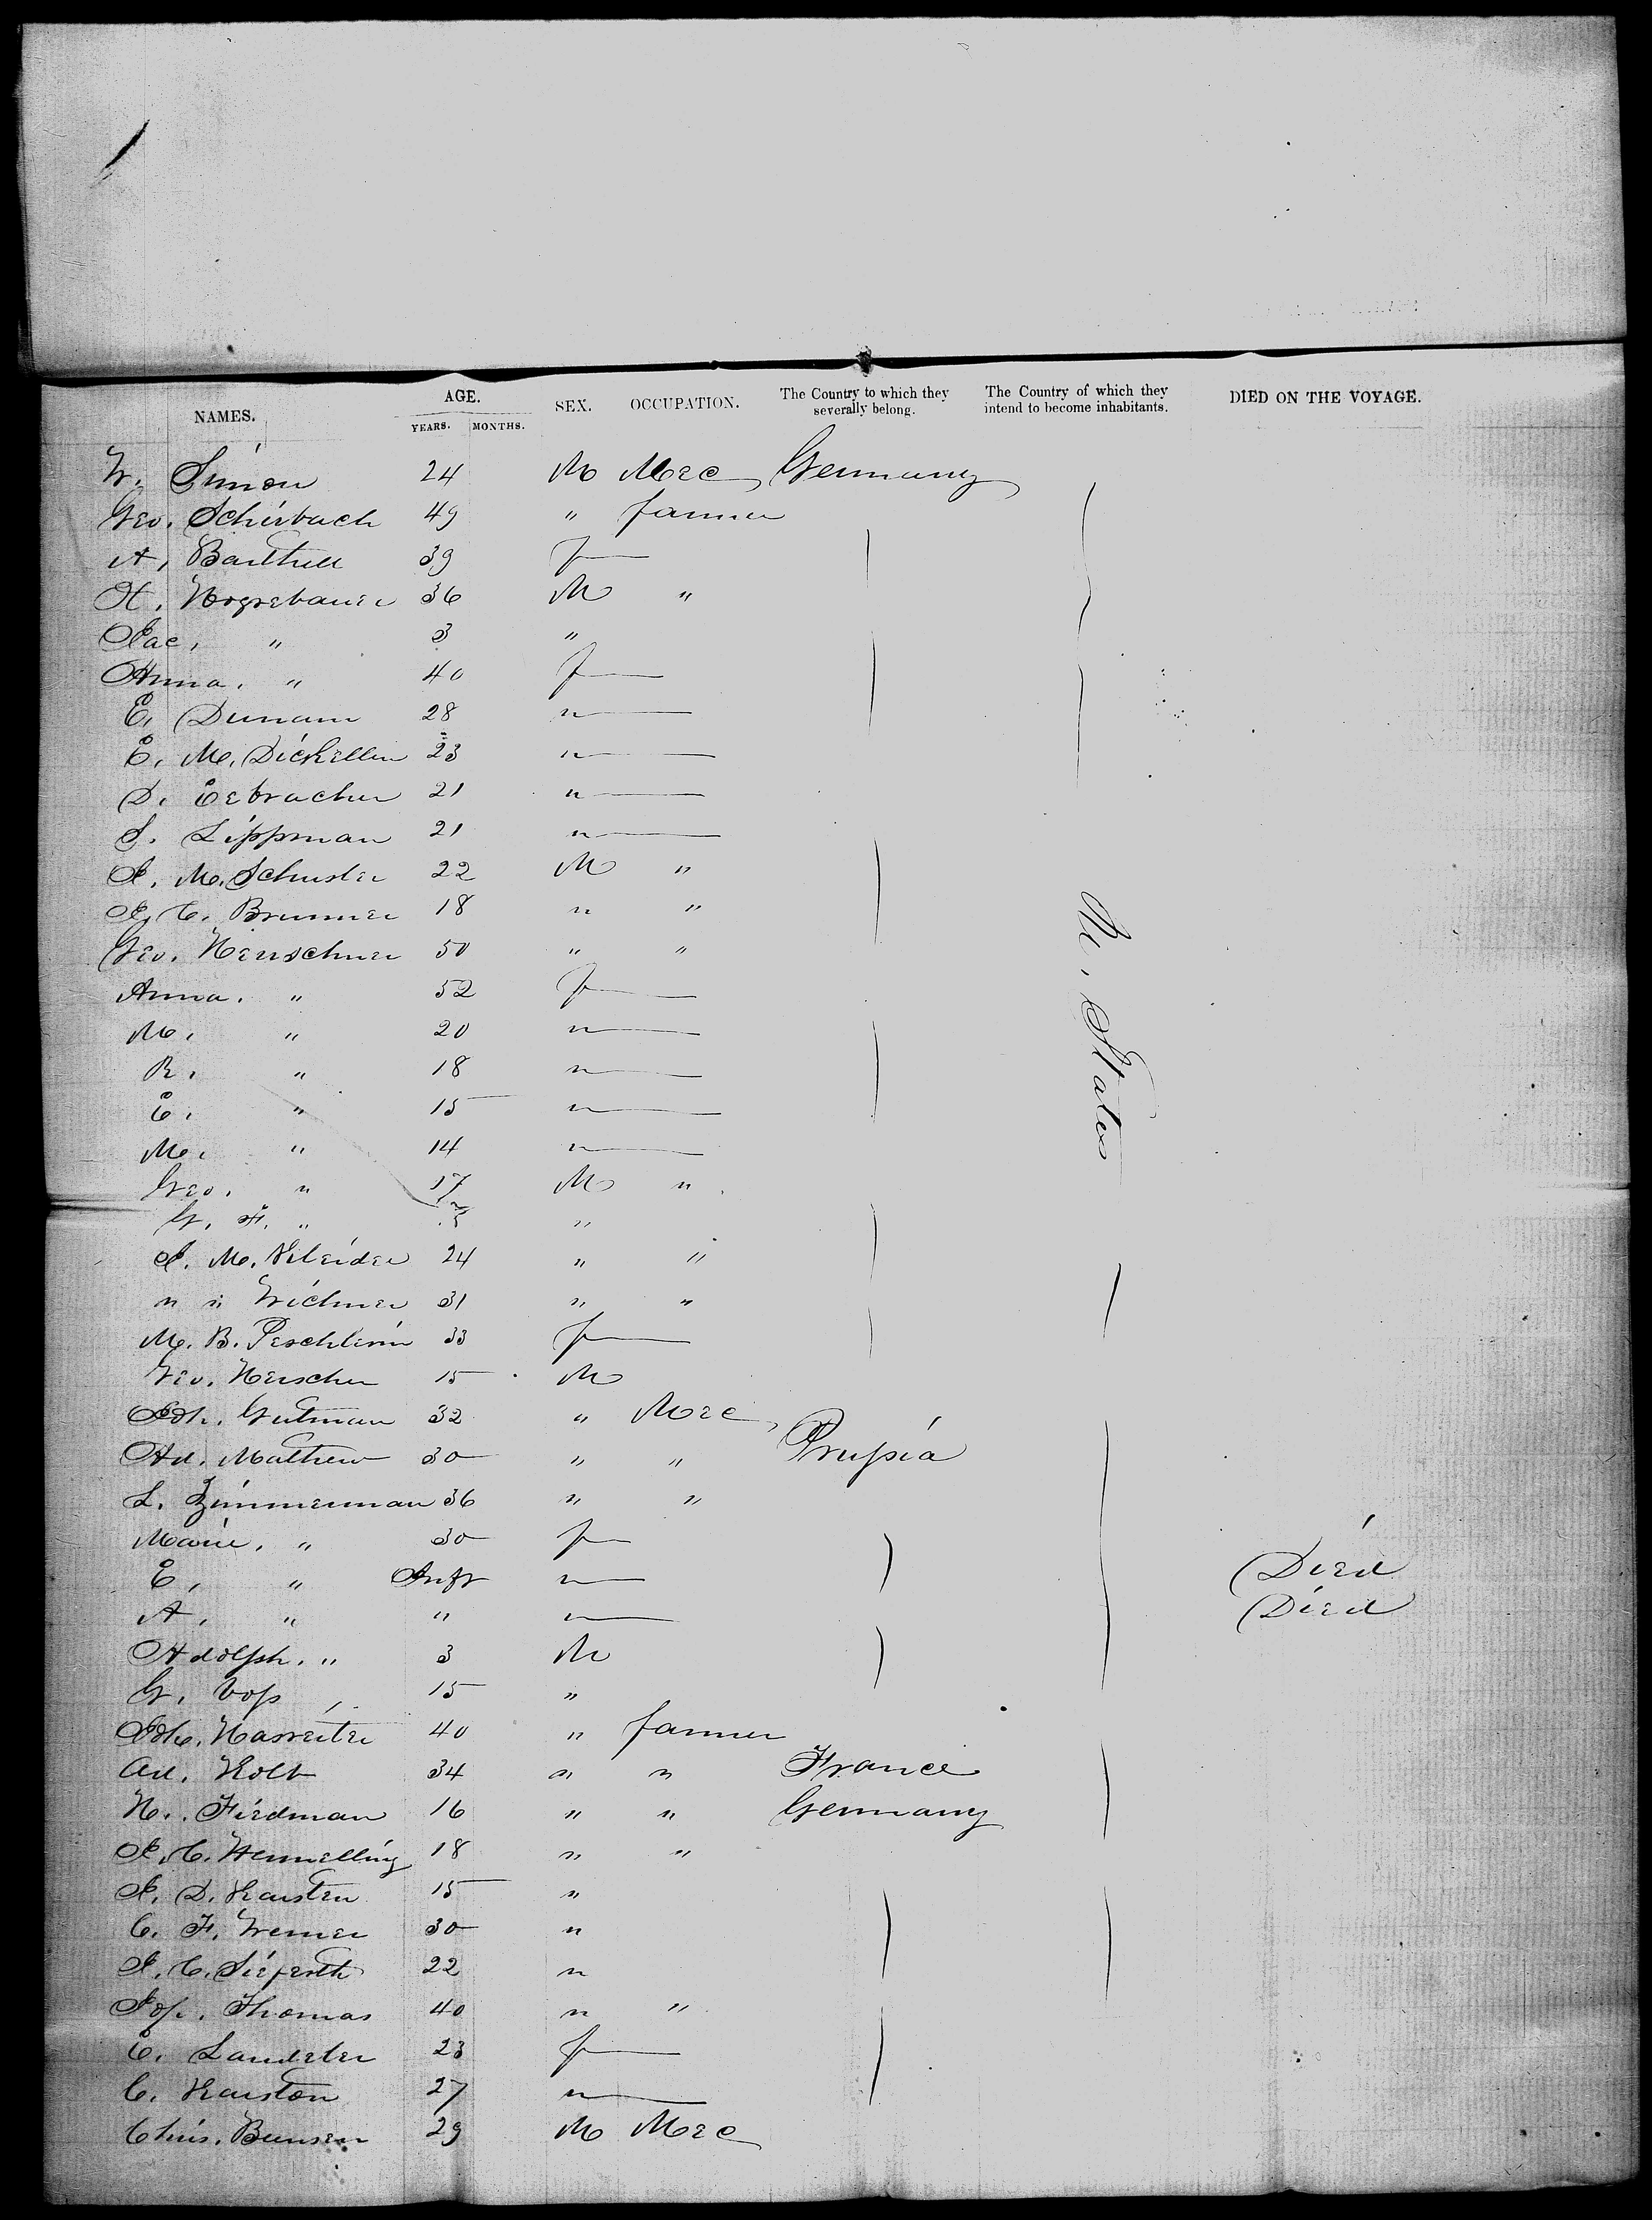 NAMES. AGE. YEARS. MONTHS. SEX. OCCUPATION. The Country to which they severally belong. The Country of which they intend to become inhabitants. DIED ON THE VOYAGE.
Simon 24 M Mec Germany
Geo. Scheirbach 49 " farmer
A. 39 f
H. 36 M "
Jac. " 3 "
Anna. " 40 f
E. 28 "
E. M. 23 "
D. 21 "
S. Lippman 21 "
J. M. Schuster 22 M "
J. C. Brunner 18 " "
Geo. Herrschner 50 " "
Anna. " 52 f
M. " 20 "
R. " 18 "
E. " 15 "
M. " 14 "
Geo. " 17 M "
G. F. " "
J. M. 24 " "
" " Wichner 31 " "
M. B. 33 f
Geo. Herscher 15 M
Joh. Gutman 32 " Mec
Ad. Mathew 30 " " Prussia
L. Zimmerman 36 " "
Marie. " 30 f
E. " Inft " Died
A. " " " Died
Adolph. " 3 M
G. Voss 15 "
Joh. 40 " farmer
Ad. Kolb 34 " " France
H. Fiedman 16 " " Germany
J. C. 18 " "
J. D. Karsten 15 "
C. F. Werner 30 "
J. C. Sieferth 22 "
Jos. Thomas 40 " "
E. 23 f
C. Karston 27 "
Chris. Bunsen 29 M Mec
U. States